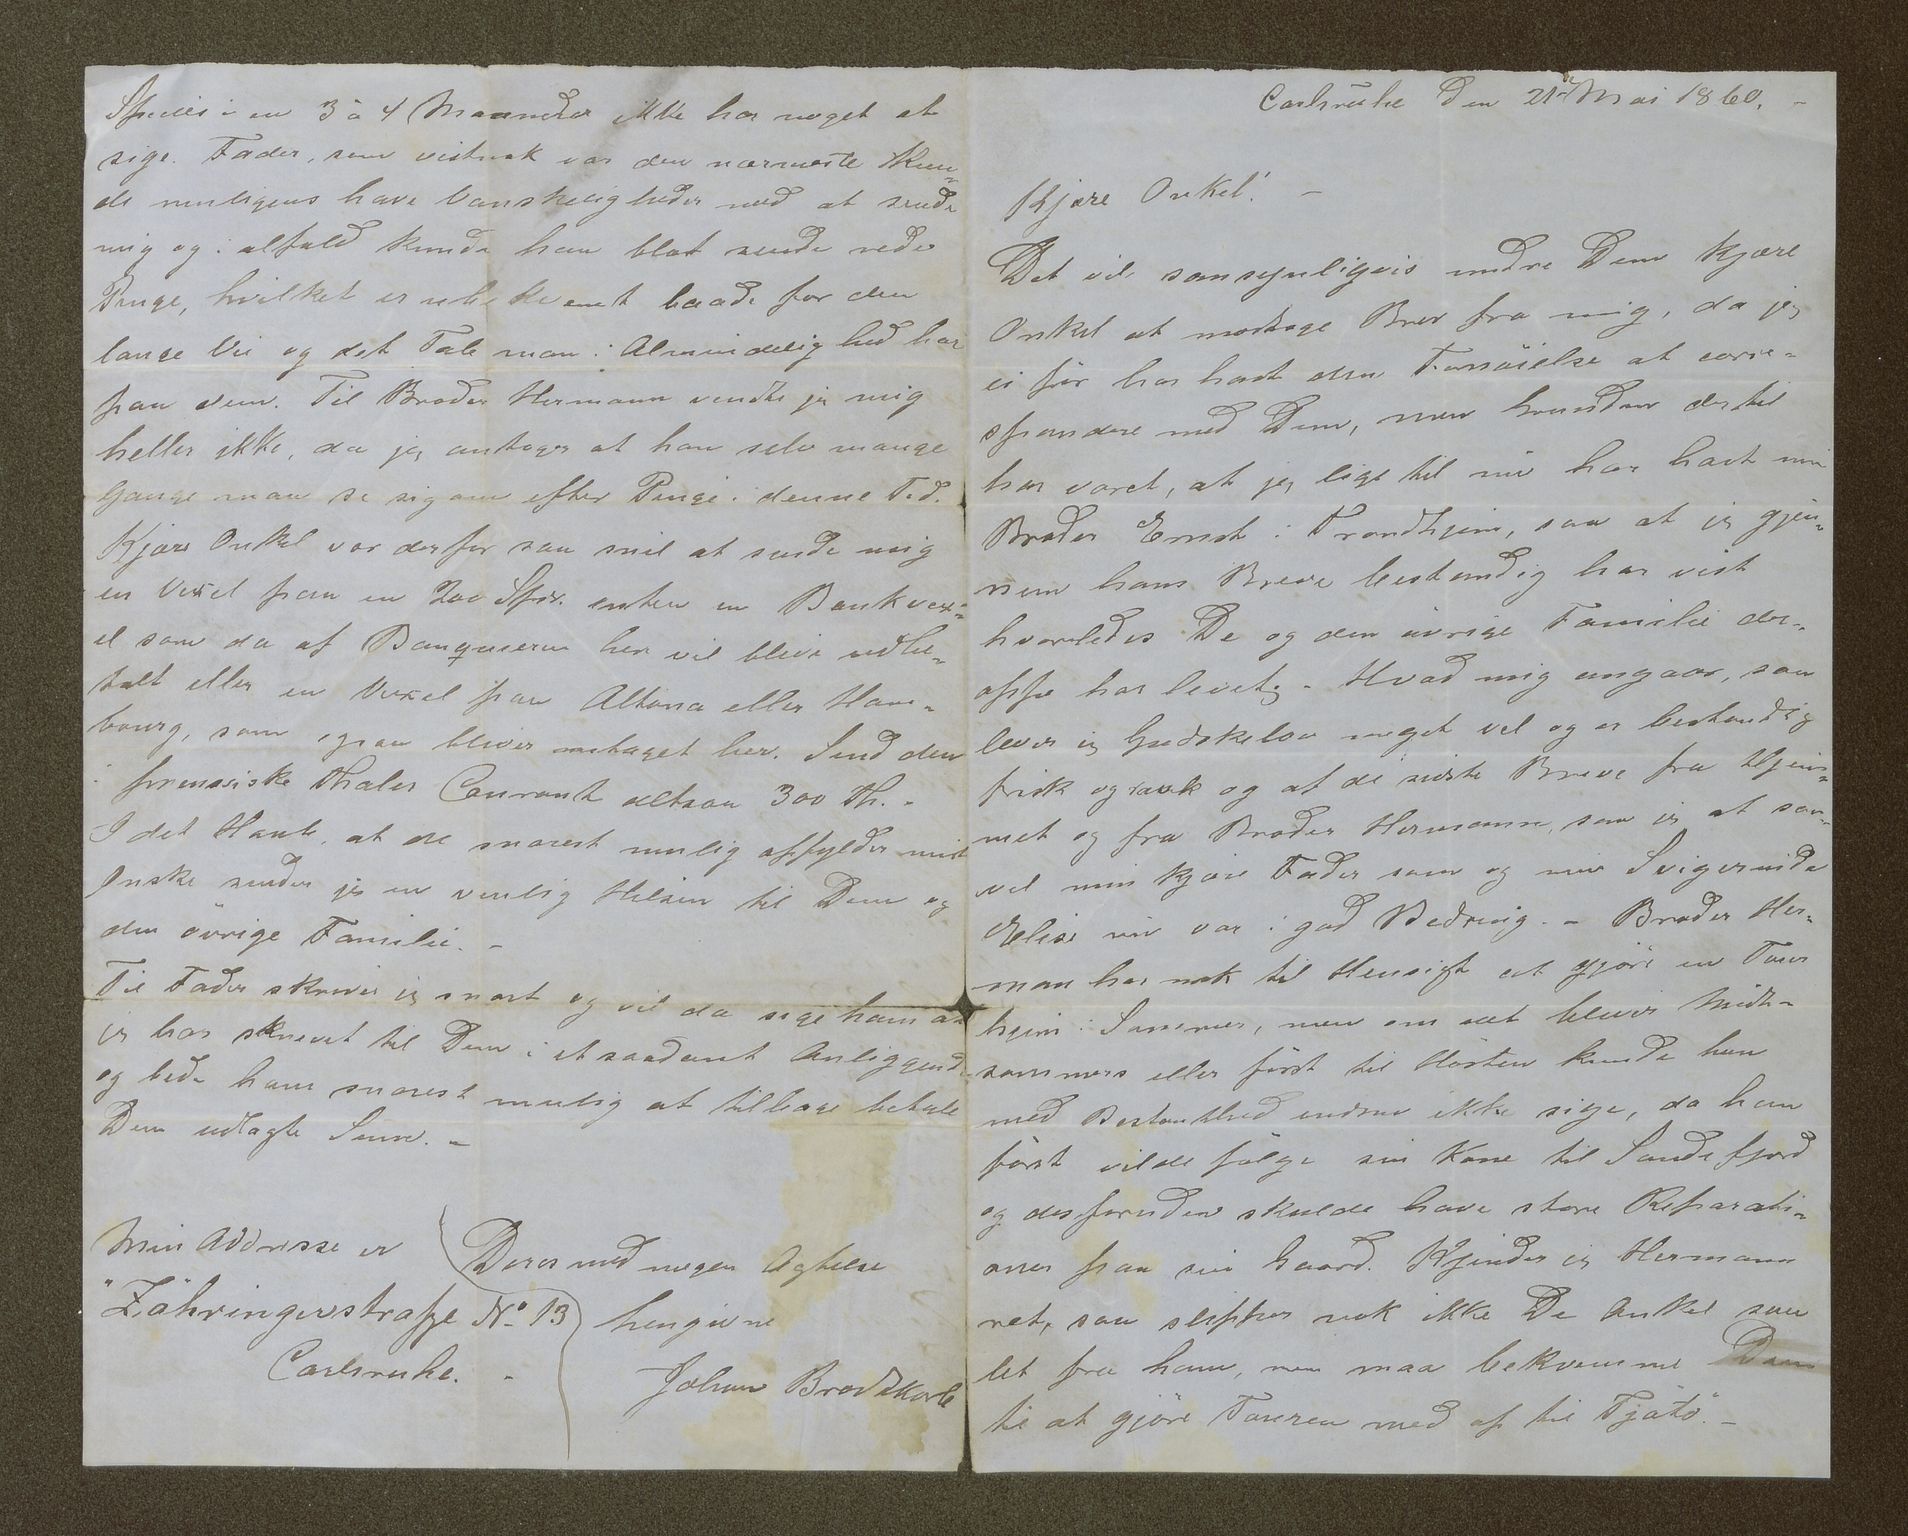 Carlsruhe Den 21de Mai 1860. -
Kjære Onkel! -
Det vil sansynligvis undre Dem kjære
Onkel at modtage Brev fra mig, da jeg
ei før har havt den Fornöielse at corre-
spondere med Dem, men Grunden dertil
har været, at jeg lige til nu har havt min
Broder Ernst i Trondhjem, saa at jeg gjen-
nem hans Breve bestandig har vist
hvorledes De og den övrige Familie der-
oppe har levet. - Hvad mig angaar, saa
lever jeg Gudskelov meget vel og er bestandig
frisk og rask og af de sidste Breve fra Hjem-
met og fra Broder Hermann, saa jeg at saa-
vel min kjære Fader som og min Svigerinde
Elise nu var i god Bedring. - Broder Her-
man har nok til Hensigt at gjöre en Tour
hjem i Sommer, men om det bliver Midt-
sommers eller först til Hösten kunde han
med Bestemthed endnu ikke sige, da han
först vilde fölge sin Kone til Sandefjord
og desforuden skulde have store Reparati-
oner paa sin Gaard. Kjender jeg Hermann
ret, saa slipper nok ikke De Onkel saa
let fra ham, men maa bekvemme Dem
til at gjöre Touren med op til Tjötö. -
Species i en 3 à 4 Maaneder ikke har noget at
sige. Fader, som vistnok var den nærmeste kun-
de muligens have Vanskeligheder med at sende
mig og i alfald kunde han blot sende rede
Penge, hvilket er ubekvemt baade for den
lange Vei og det Tab man i Almindelighed har
paa dem. Til Broder Hermann vendte jeg mig
heller ikke, da jeg antager at han selv mange
Gange maa se sig om efter Penge i denne Tid.
Kjære Onkel vær derfor saa snil at sende mig
en Vexel paa en 200 Spd. enten en Bankvex-
el som da af Banquieren her vil blive udbe-
talt eller en Vexel paa Altona eller Ham-
bourg, som ogsaa bliver antaget her. Send den
i preussiske Thaler Courant altsaa 300 Th. -
I det Haab, at de snarest mulig opfylder mit
Önske sender jeg en venlig Hilsen til Dem og
den övrige Familie. -
Til Fader skriver jeg snart og vil da sige ham at
jeg har skrevet til Dem i et saadant Anliggende
og bede ham snarest mulig at tilbage betale
Dem udlagte Sum. -
Min Addresse er
"Zähringerstraße No 13
Carlsruhe. -
Deres med megen Agtelse
hengivne
Johan Brodtkorb